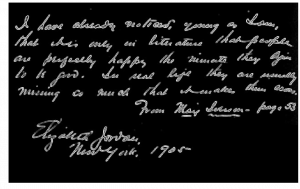 I have already noticed, young as I am,
that it is only in literature that people
are perfectly happy the minute they begin
to be good. In real life they are usually
missing so much that it makes them cross.
From May Iverson - page 53
Elizabeth Jordan,
New York, 1905